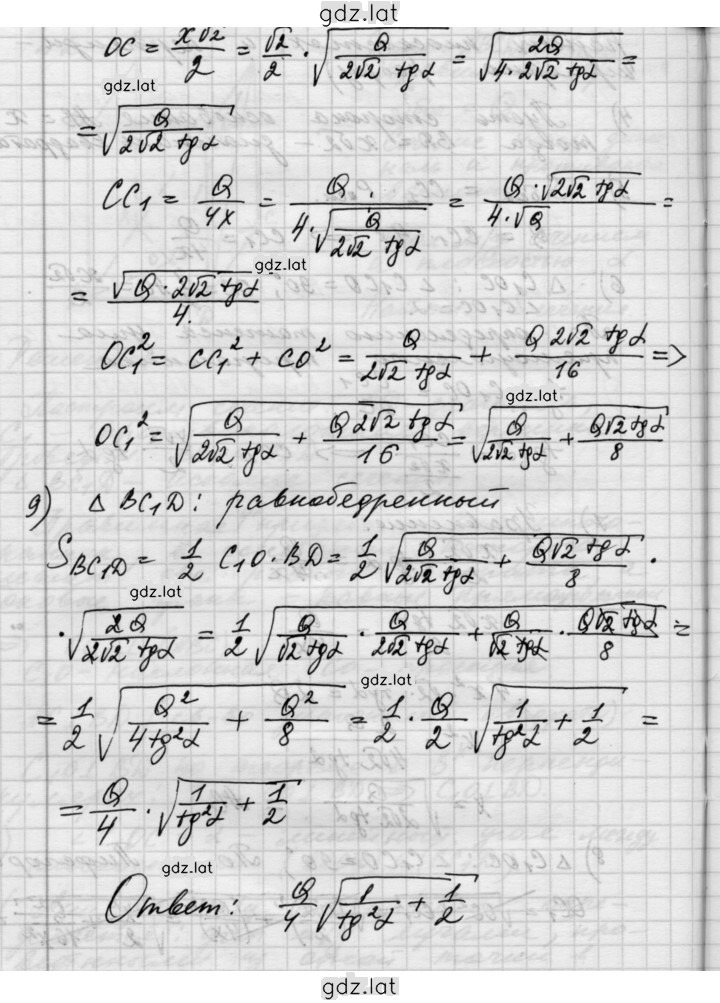 gdz.lat
OC = x√2/2 = √2/2 · √(Q/(2√2 tgα)) = √(2Q/(4·2√2 tgα)) =
gdz.lat
= √(Q/(2√2 tgα))
CC₁ = Q/4x = Q/(4·√(Q/(2√2 tgα))) = Q·√(2√2 tgα)/(4·√Q) =
gdz.lat
= √(Q·2√2 tgα)/4.
OC₁² = CC₁² + CO² = Q/(2√2 tgα) + Q 2√2 tgα/16 =>
gdz.lat
OC₁² = √(Q/(2√2 tgα) + Q 2√2 tgα/16) = √(Q/(2√2 tgα) + Q√2 tgα/8)
9) △ BC₁D: равнобедренный
S_BC₁D = 1/2 C₁O · BD = 1/2 √(Q/(2√2 tgα) + Q√2 tgα/8) ·
gdz.lat
· √(2Q/(2√2 tgα)) = 1/2 √(Q/(√2 tgα) · Q/(2√2 tgα) + Q/(√2 tgα) · Q√2 tgα/8) =
gdz.lat
= 1/2 √(Q²/(4tg²α) + Q²/8) = 1/2 · Q/2 √(1/tg²α + 1/2) =
= Q/4 · √(1/tg²α + 1/2)
gdz.lat
Ответ: Q/4 √(1/tg²α + 1/2)
gdz.lat